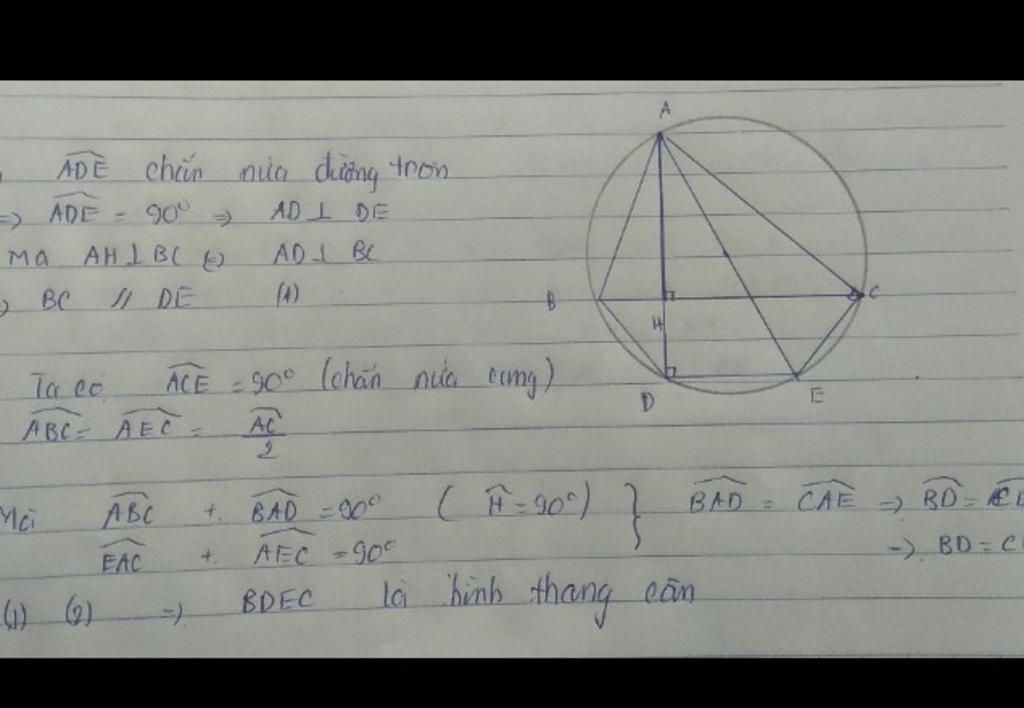 ADE chắn nửa đường tròn
=> ADE = 90° => AD ⊥ DE
Mà AH ⊥ BC (=) AD ⊥ BC
BC // DE (1)
Ta có ACE = 90° (chắn nửa cung)
ABC = AEC = AC/2
Mà ABC + BAD = 90° ( H = 90° ) } BAD = CAE => BD =
EAC + AEC = 90° -> BD = C
(1) (2) => BDEC là hình thang cân
A
B
H
C
D
E